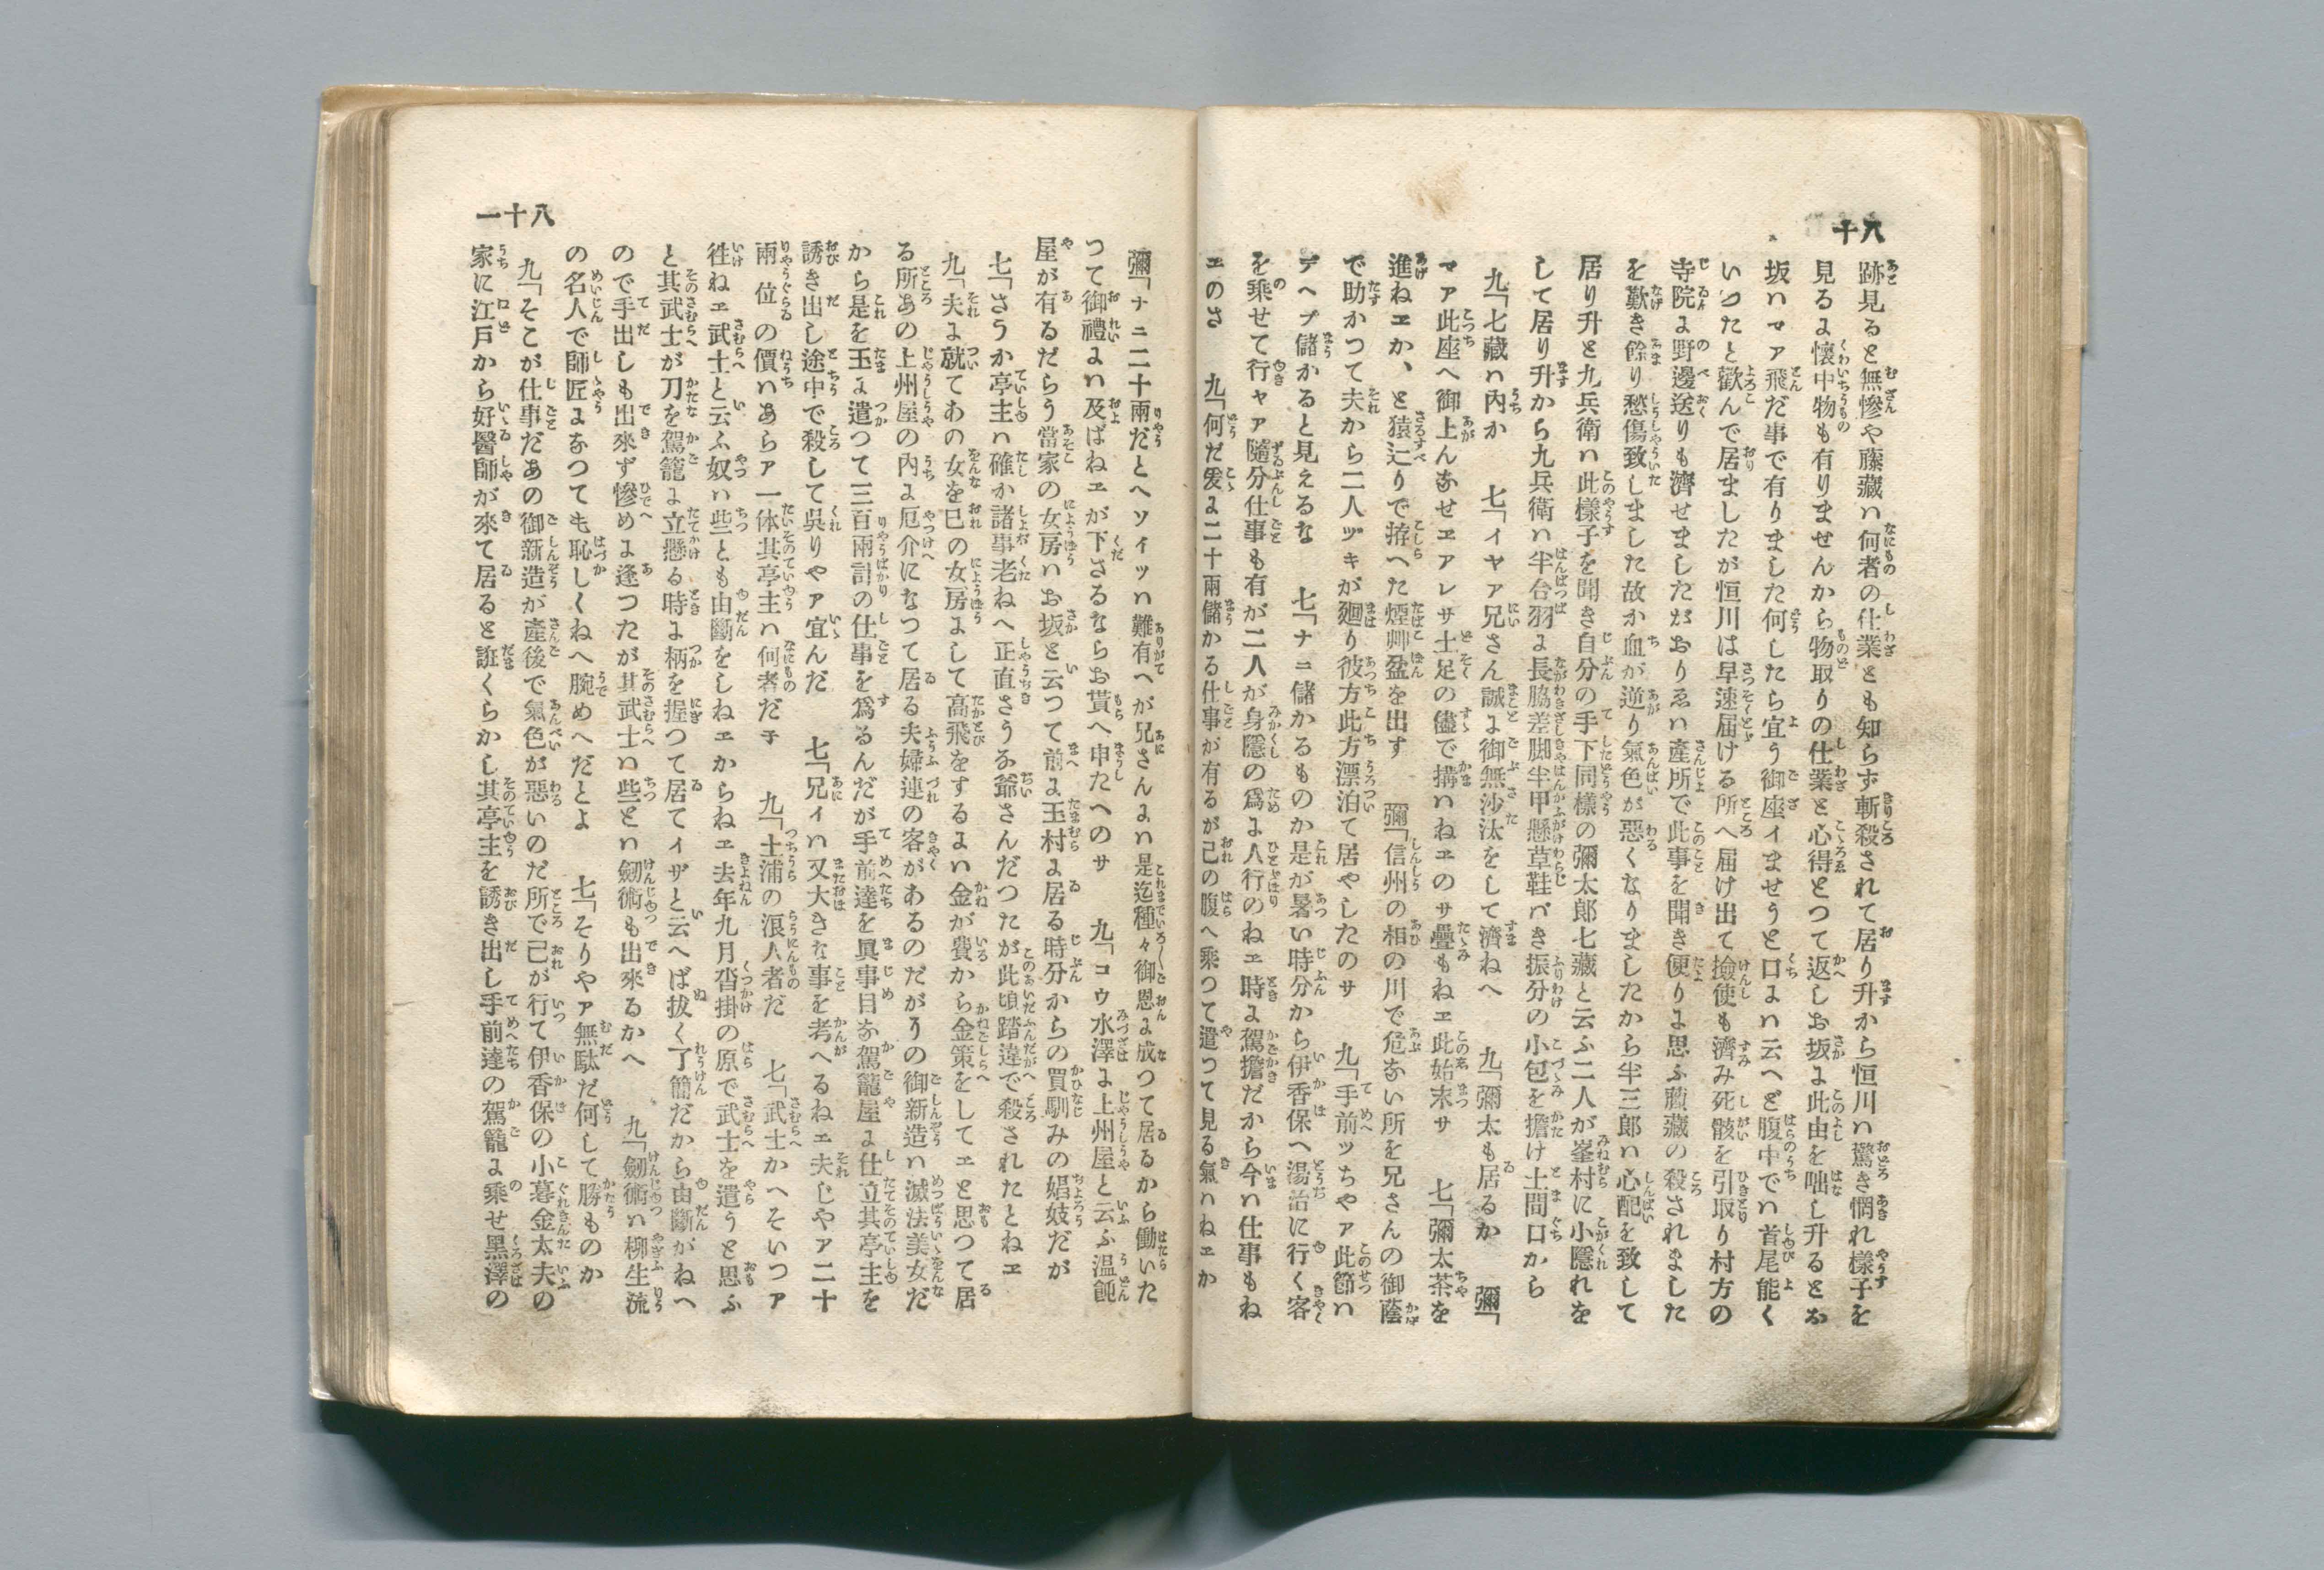 八十
跡見ると無慘や藤藏ハ何者の仕業とも知らず斬殺されて居り升から恒川ハ驚き惘れ樣子を
見るに懷中物も有りませんから物取りの仕業と心得とつて返しお坂に此由を咄し升るとお
坂ハマア飛だ事で有りました何したら宜う御座イませうと口にハ云へど腹中でハ首尾能く
いつたと歡んで居ましたが恒川は早速届ける所へ届け出て撿使も濟み死骸を引取り村方の
寺院に野邊送りも濟せましたがおりゑハ產所で此事を聞き便りに思ふ藤藏の殺されました
を歎き餘り愁傷致しました故か血が逆り氣色が惡くなりましたから半三郎ハ心配を致して
居り升と九兵衛ハ此樣子を聞き自分の手下同樣の彌太郎七藏と云ふ二人が峯村に小隱れを
して居り升から九兵衛ハ半合羽に長脇差脚半甲懸草鞋バき振分の小包を擔け土間口から
九「七藏ハ內か　七「イヤア兄さん誠に御無沙汰をして濟ねへ　九「彌太も居るか　彌「
マア此座へ御上んなせヱアレサ土足の儘で搆ハねヱのサ疊もねヱ此始末サ　七「彌太茶を
進ねヱか、と猿辷りで拵へた煙艸盆を出す　彌「信州の相の川で危ない所を兄さんの御蔭
で助かつて夫から二人ヅキが廻り彼方此方漂泊て居やしたのサ　九「手前ツちやア此節ハ
デヘブ儲かると見えるな　七「ナニ儲かるものか是が暑い時分から伊香保へ湯治に行く客
を乘せて行ャア隨分仕事も有が二人が身隱の爲に人行のねヱ時に駕擔だから今ハ仕事もね
ヱのサ　九「何だ爰に二十兩儲かる仕事が有るが己の腹へ乘つて遣つて見る氣ハねヱか
八十一
彌「ナニ二十兩だとヘソイツハ難有へが兄さんにハ是迄種々御恩に成つて居るから働いた
つて御禮にハ及ばねヱが下さるならお貰へ申たへのサ　九「コウ水澤に上州屋と云ふ温飩
屋が有るだらう當家の女房ハお坂と云つて前に玉村に居る時分からの買馴みの娼妓だが
七「さうか亭主ハ確か諸事老ねへ正直さうな爺さんだつたが此頃踏違で殺されたとねヱ
九「夫に就てあの女を已の女房にして高飛をするにハ金が費から金策をしてヱと思つて居
る所あの上州屋の內に厄介になつて居る夫婦連の客があるのだがうの御新造ハ滅法美女だ
から是を玉に遣つて三百兩計の仕事を爲るんだが手前達を眞事目な駕籠屋に仕立其亭主を
誘き出し途中で殺して呉りやア宜んだ　七「兄イハ又大きな事を考へるねヱ夫じやア二十
兩位の價ハあらア一体其亭主ハ何者だ子　九「土浦の浪人者だ　七「武士かへそいつア
徃ねヱ武士と云ふ奴ハ些とも由斷をしねヱからねヱ去年九月沓掛の原で武士を遣うと思ふ
と其武士が刀を駕籠に立懸る時に柄を握つて居てイザと云へば拔く了簡だから由斷がねへ
ので手出しも出來ず慘めに逢つたが其武士ハ些とハ劒術も出來るかへ　九「劒術ハ柳生流
の名人で師匠になつても恥しくねへ腕めへだとよ　七「そりやア無駄だ何して勝ものか
九「そこが仕事だあの御新造が產後で氣色が惡いのだ所で己が行て伊香保の小暮金太夫の
家に江戸から好醫師が來て居ると誑くらかし其亭主を誘き出し手前達の駕籠に乘せ黑澤の